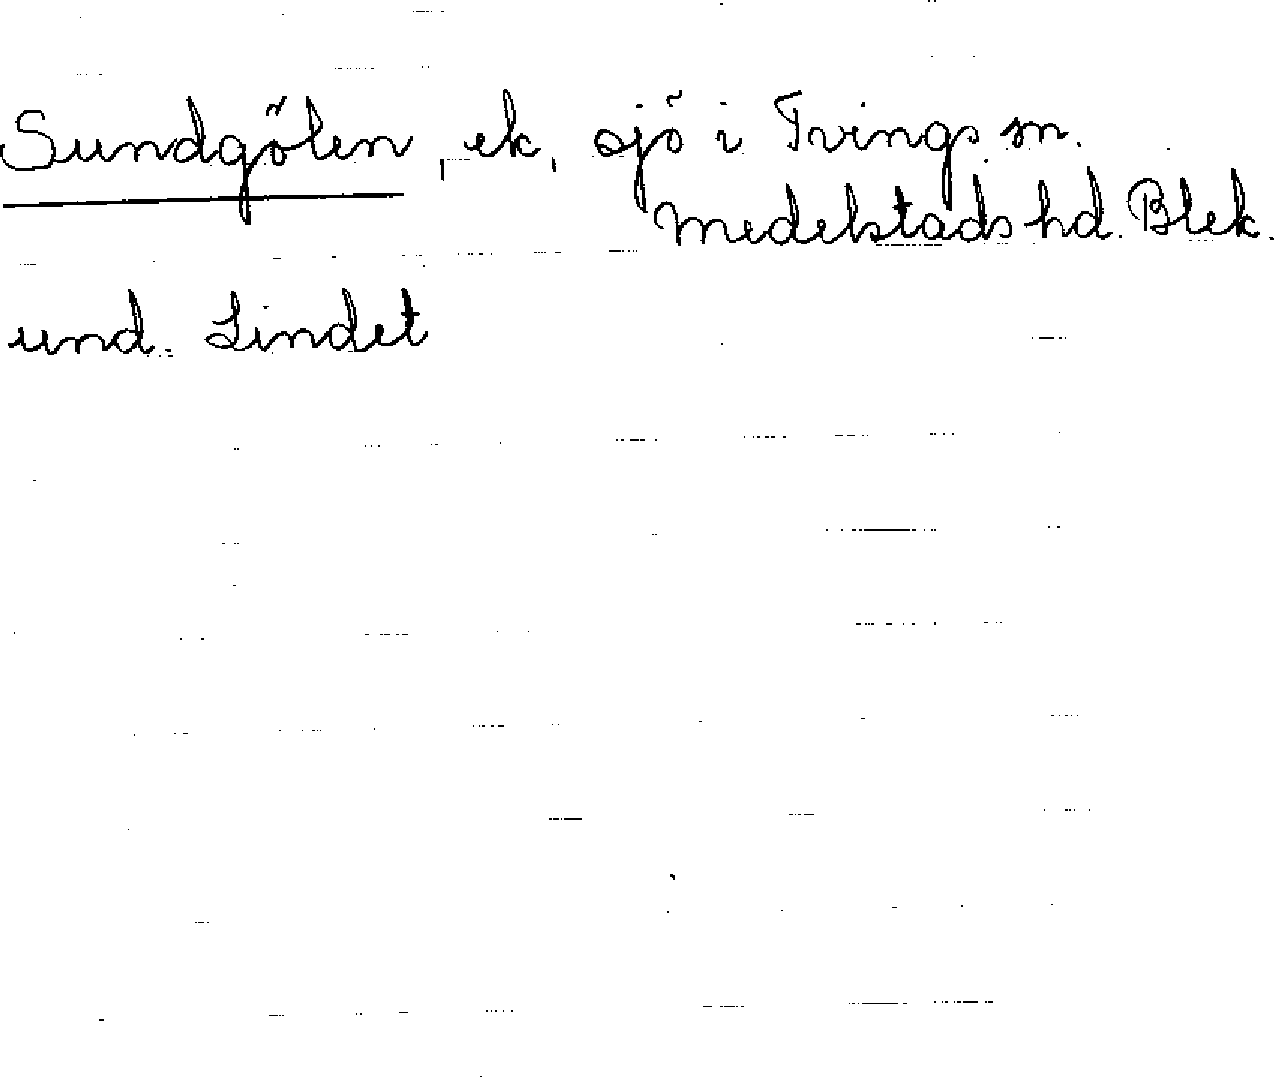 Sundgölen, ek, sjö i Tvings sn.
Medelstads hd. Blek.
und. Lindet